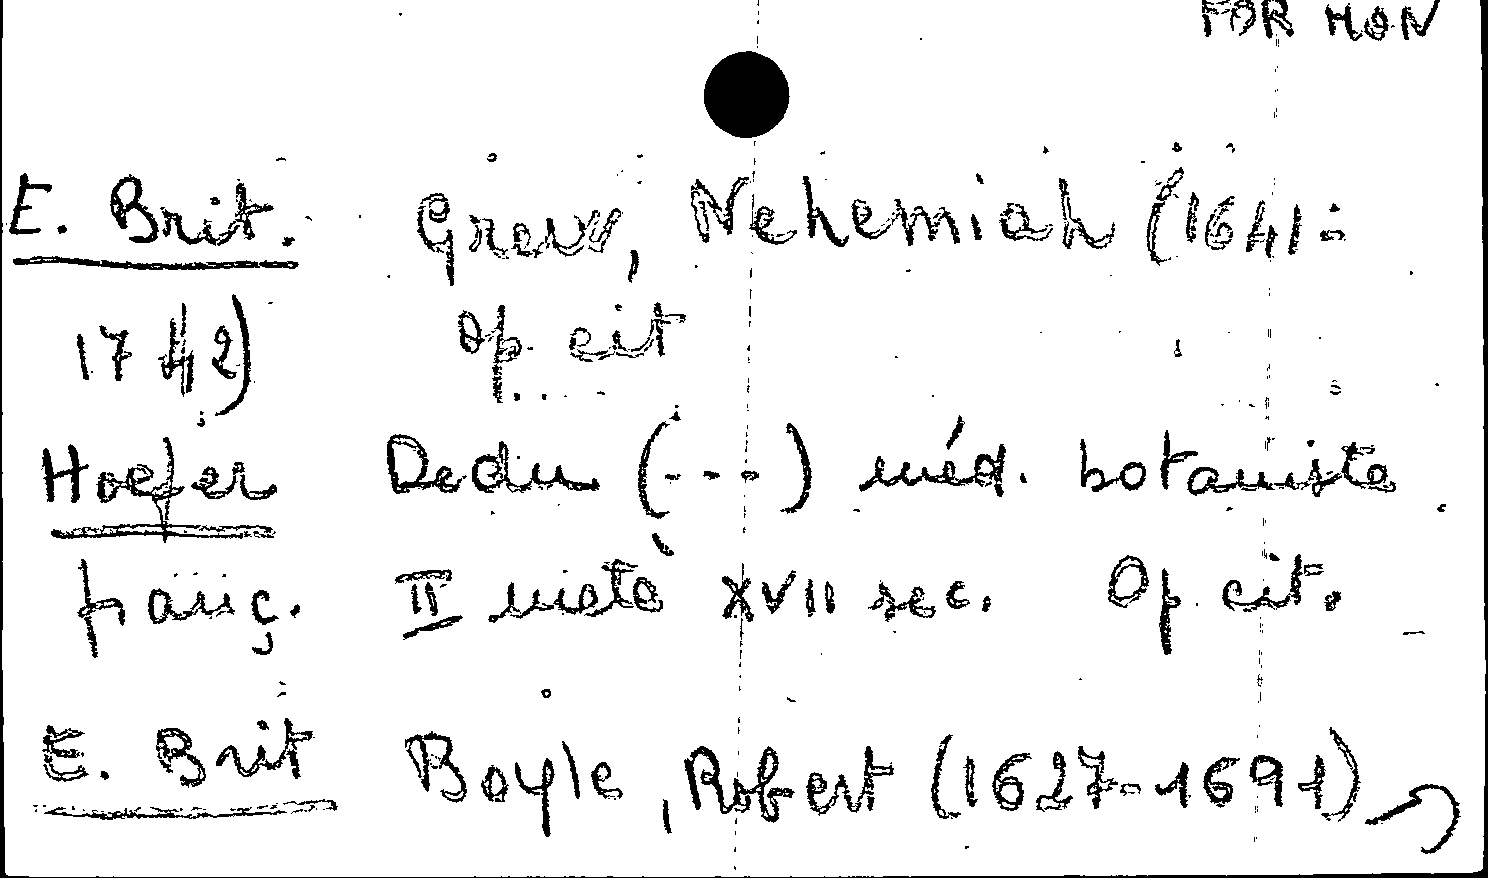 FOR MON
E. Brit. Grew, Nehemiah (1641-
1712) Op cit
Hoefer Dedu (---) méd. botaniste
franç. II metà XVII sec. Op cit.
E. Brit Boyle, Robert (1627-1691)